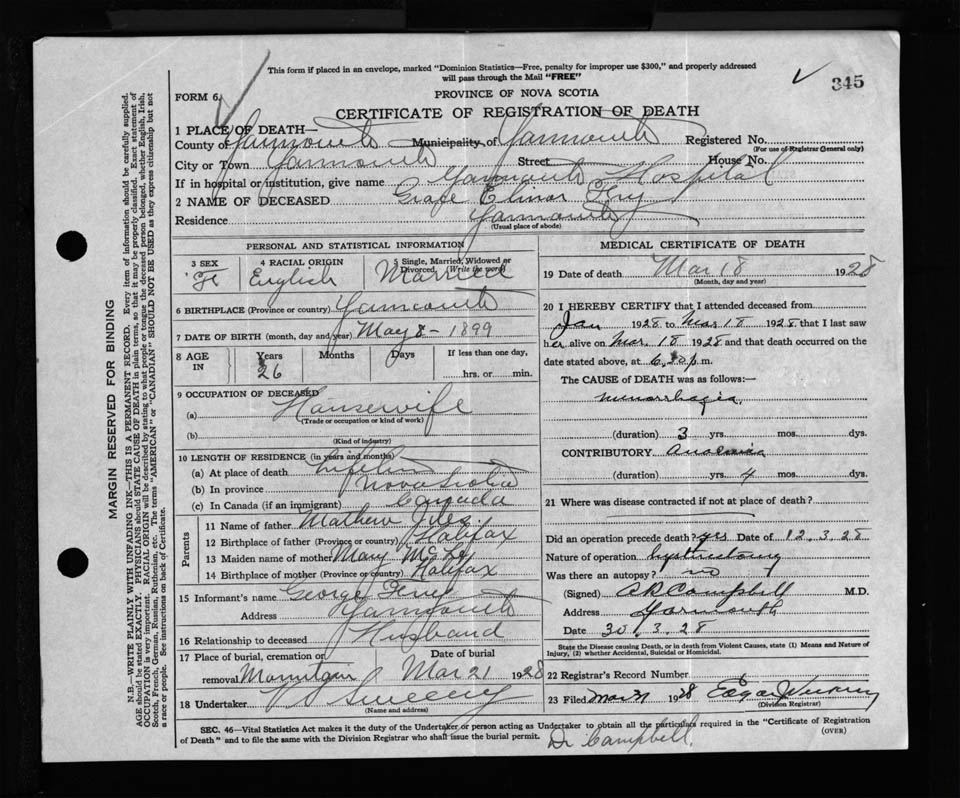 This form if placed in an envelope, marked "Dominion Statistics—Free, penalty for improper use $300," and properly addressed
will pass through the Mail "FREE"
345
FORM 6
PROVINCE OF NOVA SCOTIA
CERTIFICATE OF REGISTRATION OF DEATH
1 PLACE OF DEATH—
County of Yarmouth Municipality of Yarmouth Registered No.
(For use of Registrar General only)
City or Town Yarmouth Street House No.
If in hospital or institution, give name Yarmouth Hospital
2 NAME OF DECEASED Grace Elinor
Residence Yarmouth
(Usual place of abode)
PERSONAL AND STATISTICAL INFORMATION
3 SEX 4 RACIAL ORIGIN 5 Single, Married, Widowed or Divorced (Write the word)
F English Married
6 BIRTHPLACE (Province or country) Yarmouth
7 DATE OF BIRTH (month, day and year) May 8 - 1899
8 AGE IN Years Months Days If less than one day,
26 hrs. or min.
9 OCCUPATION OF DECEASED
(a) Housewife
(Trade or occupation or kind of work)
(b)
(Kind of industry)
10 LENGTH OF RESIDENCE (in years and months)
(a) At place of death
(b) In province Nova Scotia
(c) In Canada (if an immigrant) Canada
Parents
11 Name of father Mathew
12 Birthplace of father (Province or country) Halifax
13 Maiden name of mother Mary
14 Birthplace of mother (Province or country) Halifax
15 Informant's name George
Address Yarmouth
16 Relationship to deceased Husband
17 Place of burial, cremation or removal Date of burial
Mar 21 1928
18 Undertaker V S Sweeny
(Name and address)
MEDICAL CERTIFICATE OF DEATH
19 Date of death Mar 18 1928
(Month, day and year)
20 I HEREBY CERTIFY that I attended deceased from
Jan 1928 to Mar 18 1928 that I last saw
her alive on Mar. 18 1928 and that death occurred on the
date stated above, at p.m.
The CAUSE OF DEATH was as follows:—
menorrhagia
(duration) 3 yrs. mos. dys.
CONTRIBUTORY Anaemia
(duration) yrs. 4 mos. dys.
21 Where was disease contracted if not at place of death?
Did an operation precede death? yrs Date of 12.3.28
Nature of operation
Was there an autopsy? no
(Signed) Campbell M.D.
Address Yarmouth
Date 30.3.28
State the Disease causing Death, or in death from Violent Causes, state (1) Means and Nature of
Injury, (2) whether Accidental, Suicidal or Homicidal.
22 Registrar's Record Number
23 Filed Mar 31 1928 Edgar
(Division Registrar)
SEC. 46—Vital Statistics Act makes it the duty of the Undertaker or person acting as Undertaker to obtain all the particulars required in the "Certificate of Registration
of Death" and to file the same with the Division Registrar who shall issue the burial permit. (OVER)
Dr Campbell
MARGIN RESERVED FOR BINDING
N.B.—WRITE PLAINLY WITH UNFADING INK—THIS IS A PERMANENT RECORD. Every item of information should be carefully supplied.
AGE should be stated EXACTLY. PHYSICIANS should STATE CAUSE OF DEATH in plain terms, so that it may be properly classified. Exact statement of
OCCUPATION is very important. RACIAL ORIGIN will be described by stating to what people or tongue the deceased person belonged, whether English, Irish,
Scotch, French, German, Russian, Ruthenian, etc. The terms "AMERICAN" or "CANADIAN" SHOULD NOT BE USED as they express citizenship but not
a race or people. See instructions on back of Certificate.